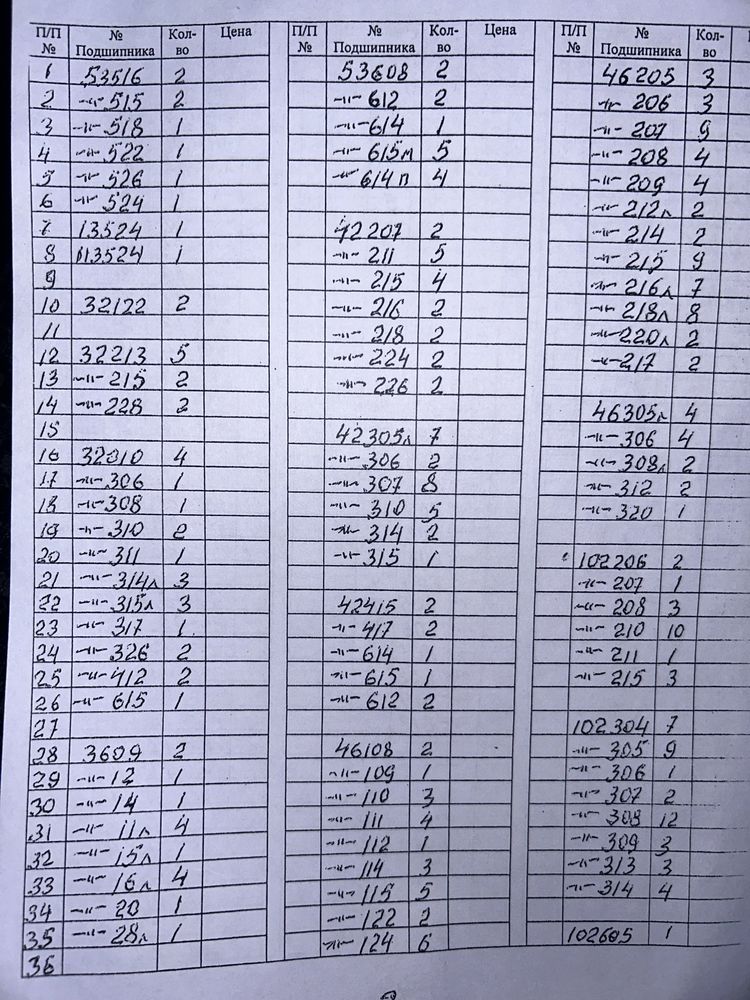 П/П № № Подшипника Кол-во Цена
1 53516 2
2 -"- 515 2
3 -"- 518 1
4 -"- 522 1
5 -"- 526 1
6 -"- 524 1
7 13524 1
8 113524 1
9
10 32122 2
11
12 32213 5
13 -"- 215 2
14 -"- 228 2
15
16 32010 4
17 -"- 306 1
18 -"- 308 1
19 -"- 310 2
20 -"- 311 1
21 -"- 314л 3
22 -"- 315л 3
23 -"- 317 1
24 -"- 326 2
25 -"- 412 2
26 -"- 615 1
27
28 3609 2
29 -"- 12 1
30 -"- 14 1
31 -"- 11л 4
32 -"- 15л 1
33 -"- 16л 4
34 -"- 20 1
35 -"- 28л 1
36
П/П № № Подшипника Кол-во Цена
53608 2
-"- 612 2
-"- 614 1
-"- 615м 5
-"- 614п 4
42207 2
-"- 211 5
-"- 215 4
-"- 216 2
-"- 218 2
-"- 224 2
-"- 226 2
42305л 7
-"- 306 2
-"- 307 8
-"- 310 5
-"- 314 2
-"- 315 1
42415 2
-"- 417 2
-"- 614 1
-"- 615 1
-"- 612 2
46108 2
-"- 109 1
-"- 110 3
-"- 111 4
-"- 112 1
-"- 114 3
-"- 115 5
-"- 122 2
-"- 124 6
П/П № № Подшипника Кол-во
46205 3
-"- 206 3
-"- 207 9
-"- 208 4
-"- 209 4
-"- 212л 2
-"- 214 2
-"- 215 9
-"- 216л 7
-"- 218л 8
-"- 220л 2
-"- 217 2
46305л 4
-"- 306 4
-"- 308л 2
-"- 312 2
-"- 320 1
102206 2
-"- 207 1
-"- 208 3
-"- 210 10
-"- 211 1
-"- 215 3
102304 7
-"- 305 9
-"- 306 1
-"- 307 2
-"- 308 12
-"- 309 3
-"- 313 3
-"- 314 4
102605 1